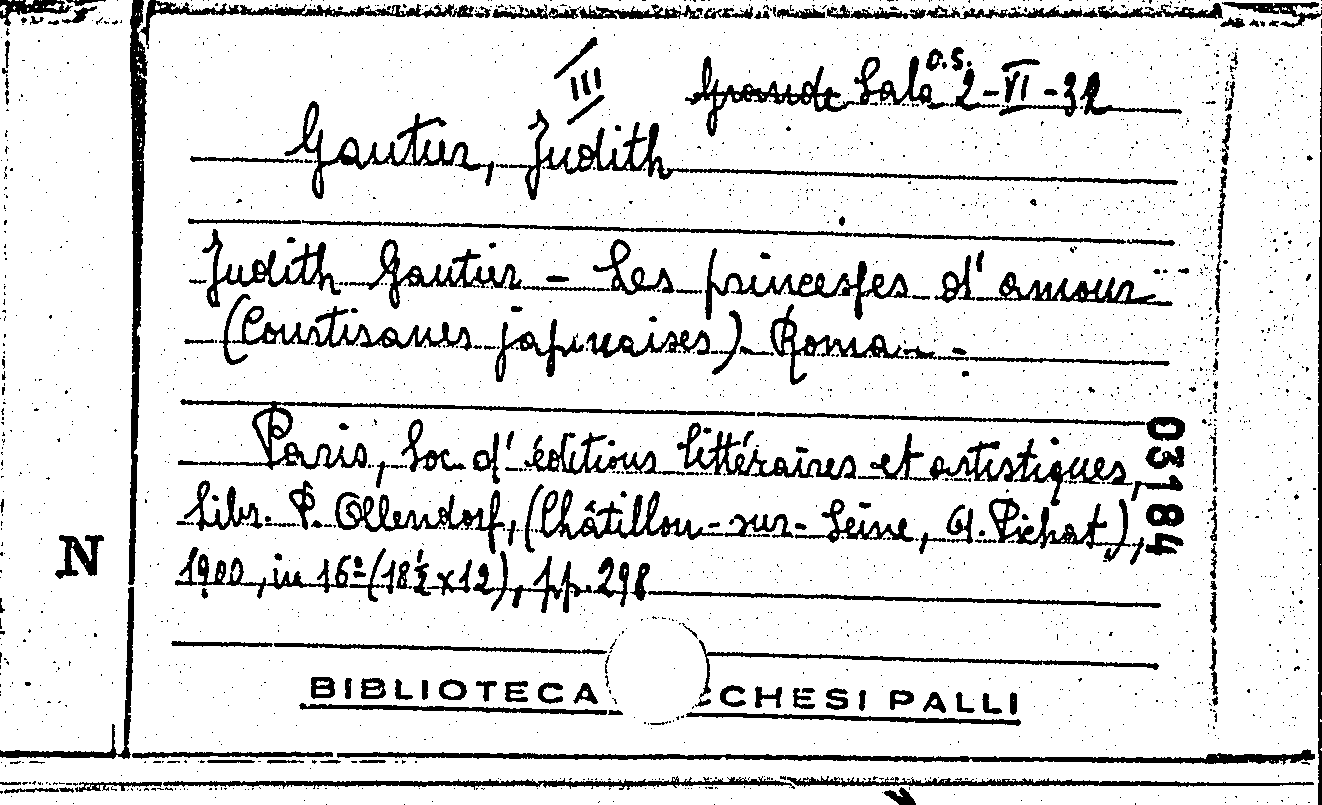 III
Grande Sala O.S. 2-VI-32
Gautier, Judith
Judith Gautier – Les princesses d'amour
(Courtisanes japonaises). Roman. -
Paris, Soc. d'éditions littéraires et artistiques,
Libr. P. Ollendorf, (Châtillon-sur-Seine, A. Pichat),
1900, in 16º (18½ x 12), pp. 298
03184
N
BIBLIOTECA CCHESI PALLI